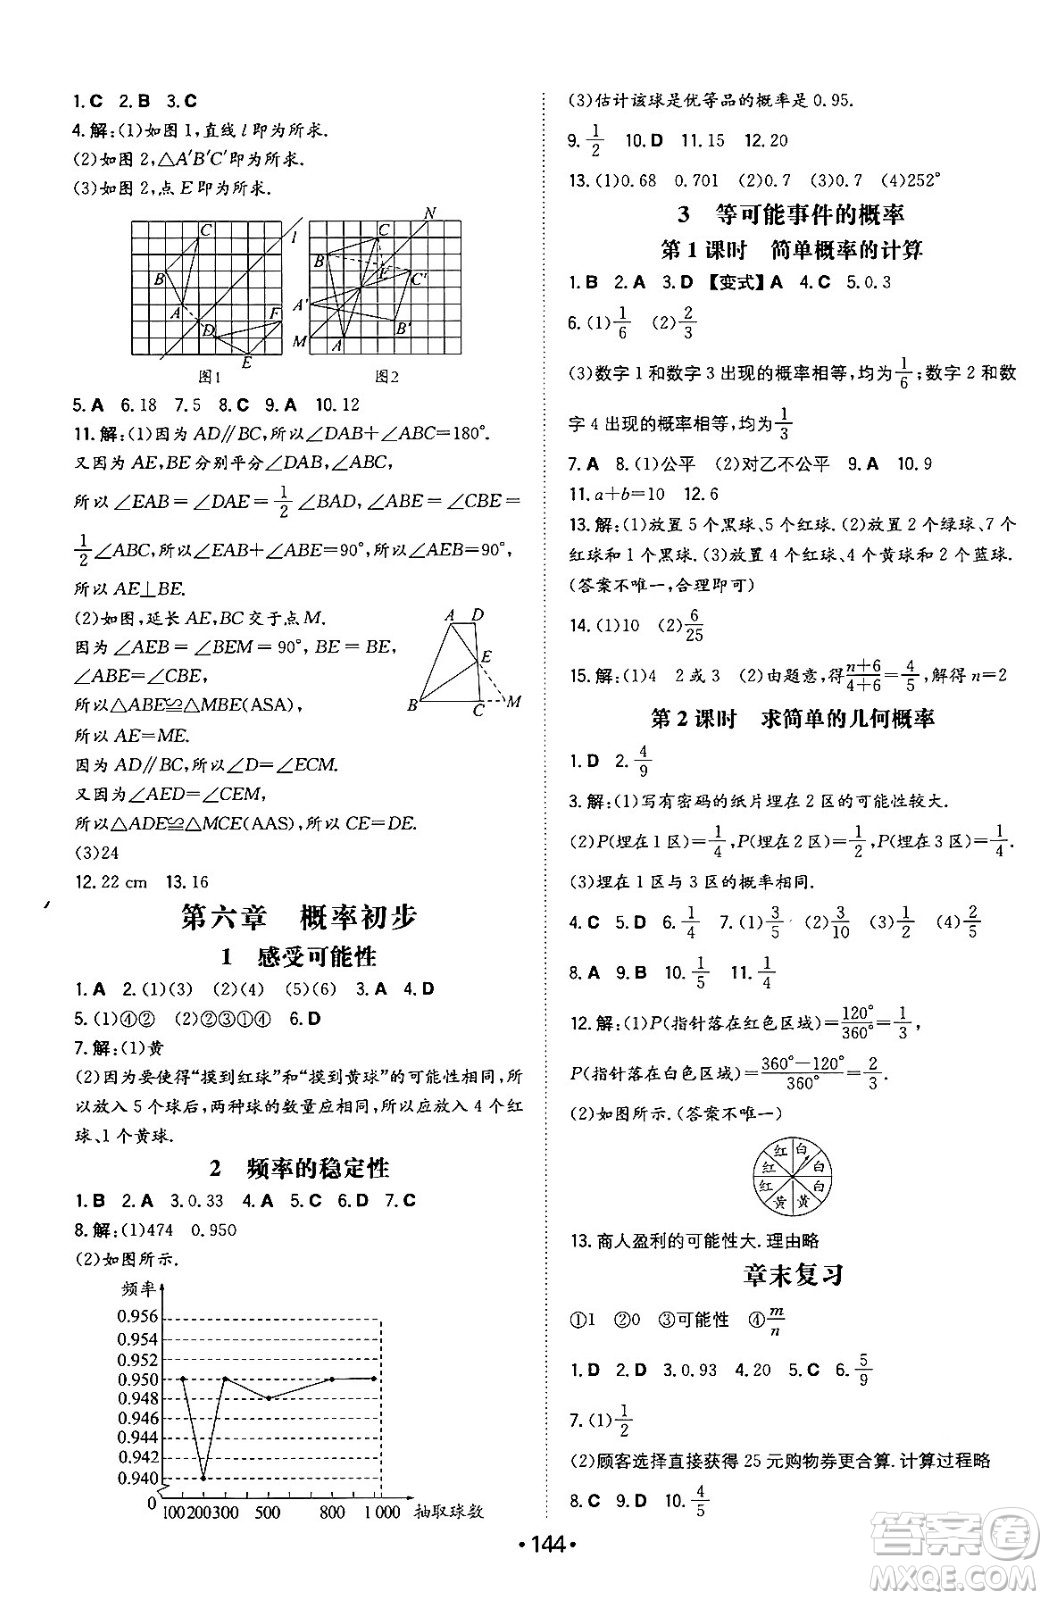 1.C 2.B 3.C
4.解:(1)如图 1,直线 l 即为所求.
(2)如图 2,△A′B′C′即为所求.
(3)如图 2,点 E 即为所求.
C l B A D F E
图1
N C B E C′ A′ B′ M A
图2
5.A 6.18 7.5 8.C 9.A 10.12
11.解:(1)因为 AD∥BC,所以∠DAB+∠ABC=180°.
又因为 AE,BE 分别平分∠DAB,∠ABC,
所以∠EAB=∠DAE=1/2∠BAD,∠ABE=∠CBE=
1/2∠ABC,所以∠EAB+∠ABE=90°,所以∠AEB=90°,
所以 AE⊥BE.
(2)如图,延长 AE,BC 交于点 M.
因为∠AEB=∠BEM=90°,BE=BE,
∠ABE=∠CBE,
所以△ABE≌△MBE(ASA),
所以 AE=ME.
因为 AD∥BC,所以∠D=∠ECM.
又因为∠AED=∠CEM,
所以△ADE≌△MCE(AAS),所以 CE=DE.
A D E B C M
(3)24
12.22 cm 13.16
第六章 概率初步
1 感受可能性
1.A 2.(1)(3) (2)(4) (5)(6) 3.A 4.D
5.(1)④② (2)②③①④ 6.D
7.解:(1)黄
(2)因为要使得“摸到红球”和“摸到黄球”的可能性相同,所
以放入 5 个球后,两种球的数量应相同,所以应放入 4 个红
球、1 个黄球.
2 频率的稳定性
1.B 2.A 3.0.33 4.A 5.C 6.D 7.C
8.解:(1)474 0.950
(2)如图所示.
频率
0.956
0.954
0.952
0.950
0.948
0.946
0.944
0.942
0.940
0 100 200 300 500 800 1 000 抽取球数
(3)估计该球是优等品的概率是 0.95.
9.1/2 10.D 11.15 12.20
13.(1)0.68 0.701 (2)0.7 (3)0.7 (4)252°
3 等可能事件的概率
第 1 课时 简单概率的计算
1.B 2.A 3.D 【变式】A 4.C 5.0.3
6.(1)1/6 (2)2/3
(3)数字 1 和数字 3 出现的概率相等,均为1/6;数字 2 和数
字 4 出现的概率相等,均为1/3
7.A 8.(1)公平 (2)对乙不公平 9.A 10.9
11.a+b=10 12.6
13.解:(1)放置 5 个黑球、5 个红球.(2)放置 2 个绿球、7 个
红球和 1 个黑球.(3)放置 4 个红球、4 个黄球和 2 个蓝球.
(答案不唯一,合理即可)
14.(1)10 (2)6/25
15.解:(1)4 2 或 3 (2)由题意,得(n+6)/(4+6)=4/5,解得 n=2
第 2 课时 求简单的几何概率
1.D 2.4/9
3.解:(1)写有密码的纸片埋在 2 区的可能性较大.
(2)P(埋在 1 区)=1/4,P(埋在 2 区)=1/2,P(埋在 3 区)=1/4.
(3)埋在 1 区与 3 区的概率相同.
4.C 5.D 6.1/4 7.(1)3/5 (2)3/10 (3)1/2 (4)2/5
8.A 9.B 10.1/5 11.1/4
12.解:(1)P(指针落在红色区域)=120°/360°=1/3,
P(指针落在白色区域)=(360°-120°)/360°=2/3.
(2)如图所示.(答案不唯一)
红 白 红 白 红 白 黄 黄
13.商人盈利的可能性大.理由略
章末复习
①1 ②0 ③可能性 ④m/n
1.D 2.D 3.0.93 4.20 5.C 6.5/9
7.(1)1/2
(2)顾客选择直接获得 25 元购物券更合算.计算过程略
8.C 9.D 10.4/5
·144·
答案圈
MXQE.COM